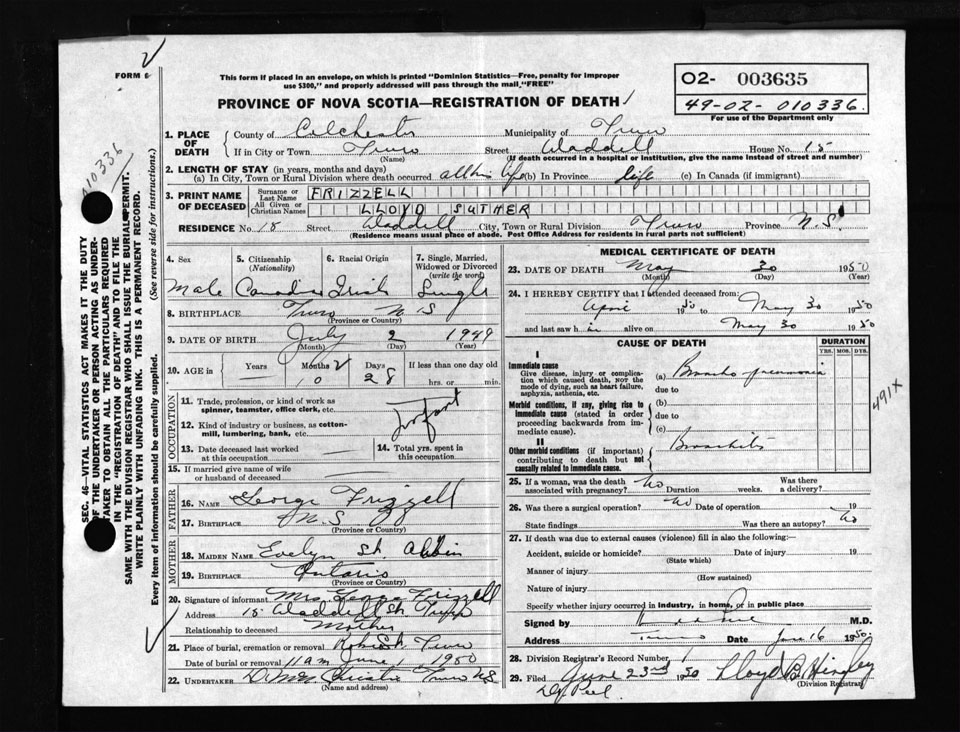 FORM 6
This form if placed in an envelope, on which is printed "Dominion Statistics—Free, penalty for improper
use $300," and properly addressed will pass through the mail "FREE"
PROVINCE OF NOVA SCOTIA—REGISTRATION OF DEATH
O2- 003635
49-02-010336
For use of the Department only
A10336
SEC. 46—VITAL STATISTICS ACT MAKES IT THE DUTY
OF THE UNDERTAKER OR PERSON ACTING AS UNDER-
TAKER TO OBTAIN ALL THE PARTICULARS REQUIRED
IN THE "REGISTRATION OF DEATH" AND TO FILE THE
SAME WITH THE DIVISION REGISTRAR WHO SHALL ISSUE THE BURIAL PERMIT.
WRITE PLAINLY WITH UNFADING INK. THIS IS A PERMANENT RECORD.
Every item of information should be carefully supplied. (See reverse side for instructions.)
1. PLACE OF DEATH County of Colchester Municipality of Truro
If in City or Town Truro Street Waddell House No. 15
(Name) (If death occurred in a hospital or institution, give the name instead of street and number)
2. LENGTH OF STAY (in years, months and days)
(a) In City, Town or Rural Division where death occurred all his life (b) In Province life (c) In Canada (if immigrant)
3. PRINT NAME OF DECEASED Surname or Last Name FRIZZELL
All Given or Christian Names LLOYD SUTHER
RESIDENCE No. 15 Street Waddell City, Town or Rural Division Truro Province N.S.
(Residence means usual place of abode. Post Office Address for residents in rural parts not sufficient)
4. Sex 5. Citizenship (Nationality) 6. Racial Origin 7. Single, Married, Widowed or Divorced (write the word)
Male Canadian Irish Single
8. BIRTHPLACE Truro N.S
(Province or Country)
9. DATE OF BIRTH July 2 1949
(Month) (Day) (Year)
10. AGE in Years Months Days If less than one day old
— 10 28 hrs. or min.
OCCUPATION
11. Trade, profession, or kind of work as spinner, teamster, office clerk, etc. Infant
12. Kind of industry or business, as cotton-mill, lumbering, bank, etc.
13. Date deceased last worked at this occupation — 14. Total yrs. spent in this occupation
15. If married give name of wife or husband of deceased
FATHER
16. NAME George Frizzell
17. BIRTHPLACE N.S
(Province or Country)
MOTHER
18. MAIDEN NAME Evelyn St.
19. BIRTHPLACE Ontario
(Province or Country)
20. Signature of informant Mrs. George Frizzell
Address 15 Waddell St. Truro
Relationship to deceased Mother
21. Place of burial, cremation or removal Robie St. Truro
Date of burial or removal 11am June 1 1950
22. UNDERTAKER Christie Truro NS
(Name and address)
MEDICAL CERTIFICATE OF DEATH
23. DATE OF DEATH May 30 1950
(Month) (Day) (Year)
24. I HEREBY CERTIFY that I attended deceased from:
April 1950 to May 30 1950
and last saw him alive on May 30 1950
CAUSE OF DEATH DURATION
YRS. MOS. DYS.
I
Immediate cause
Give disease, injury or complication which caused death, NOT the mode of dying, such as heart failure, asphyxia, asthenia, etc.
(a) Broncho-pneumonia
due to
Morbid conditions, if any, giving rise to immediate cause (stated in order proceeding backwards from immediate cause).
(b)
due to
(c)
II
Other morbid conditions (if important) contributing to death but not causally related to immediate cause.
Bronchitis
491X
25. If a woman, was the death associated with pregnancy? No Duration weeks. Was there a delivery?
26. Was there a surgical operation? No Date of operation 19
State findings Was there an autopsy? No
27. If death was due to external causes (violence) fill in also the following:—
Accident, suicide or homicide? Date of injury 19
(State which)
Manner of injury
(How sustained)
Nature of injury
Specify whether injury occurred in industry, in home, or in public place
Signed by M.D.
Address Truro Date June 16 1950
28. Division Registrar's Record Number
29. Filed June 23rd 1950 Lloyd B. Hingley
(Division Registrar)